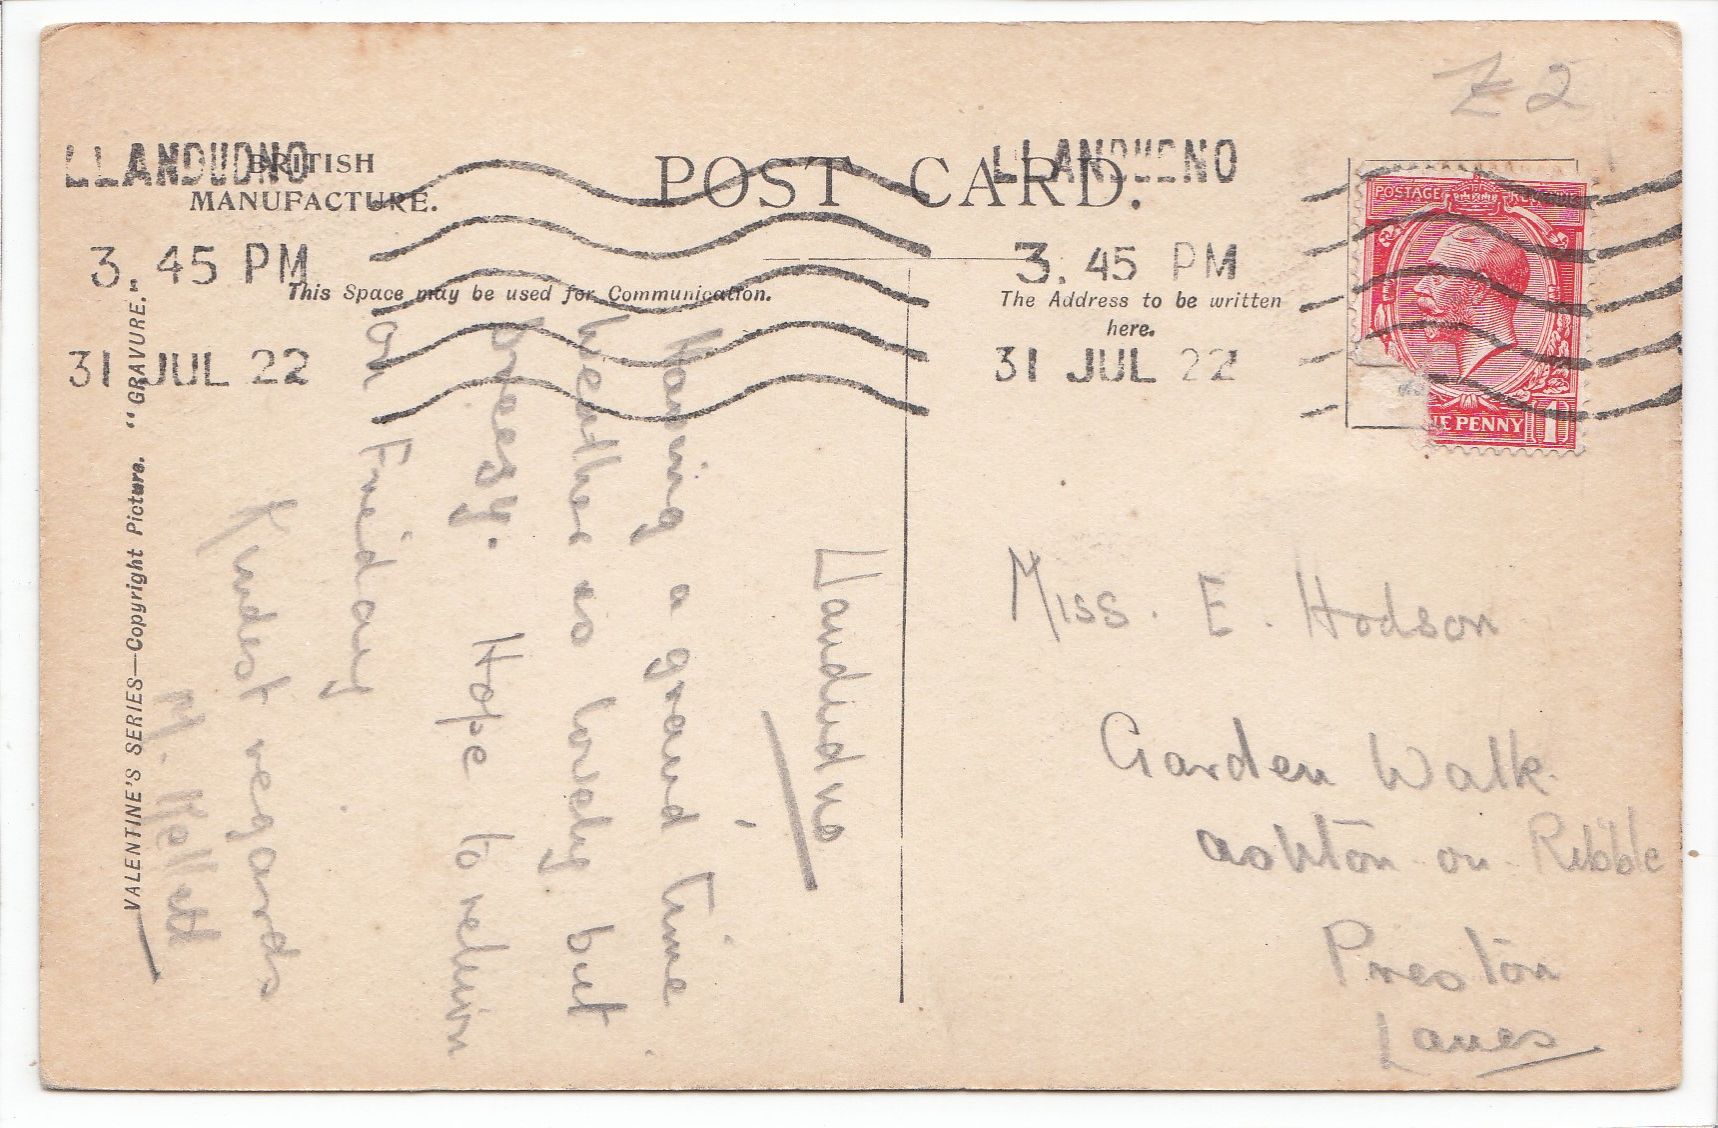 Z 2
LLANDUDNO
BRITISH
MANUFACTURE.
POST CARD.
LLANDUDNO
POSTAGE REVENUE
3. 45 PM
3. 45 PM
This Space may be used for Communication.
The Address to be written
here.
31 JUL 22
31 JUL 22
NE PENNY 1
VALENTINE'S SERIES—Copyright Picture. "GRAVURE."
Llandudno
Having a grand time
weather is lovely but
breesy. Hope to return
on Friday
Kindest regards
M. Kellett
Miss. E. Hodson
Garden Walk
Ashton-on-Ribble
Preston
Lancs.